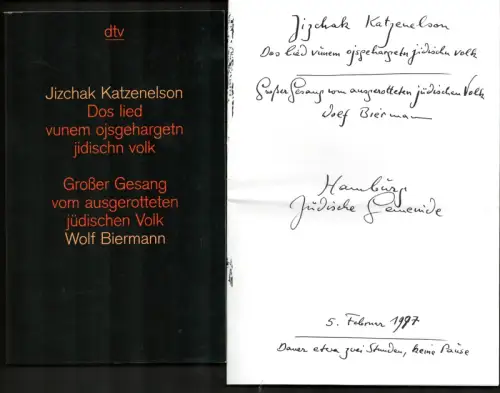 dtv
Jizchak Katzenelson
Dos lied
vunem ojsgehargetn
jidischn volk
Großer Gesang
vom ausgerotteten
jüdischen Volk
Wolf Biermann
Jizchak Katzenelson
Dos lied vunem ojsgehargetn jüdischn volk
Großer Gesang vom ausgerotteten jüdischen Volk
Wolf Biermann
Hamburg
Jüdische Gemeinde
5. Februar 1997
Dauer etwa zwei Stunden, keine Pause